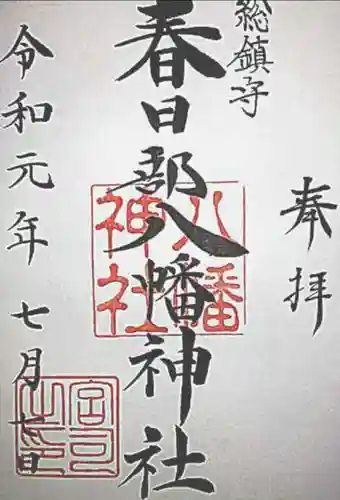 奉拝
総鎮守
春日部八幡神社
八幡神社
令和元年七月七日
宮司之印